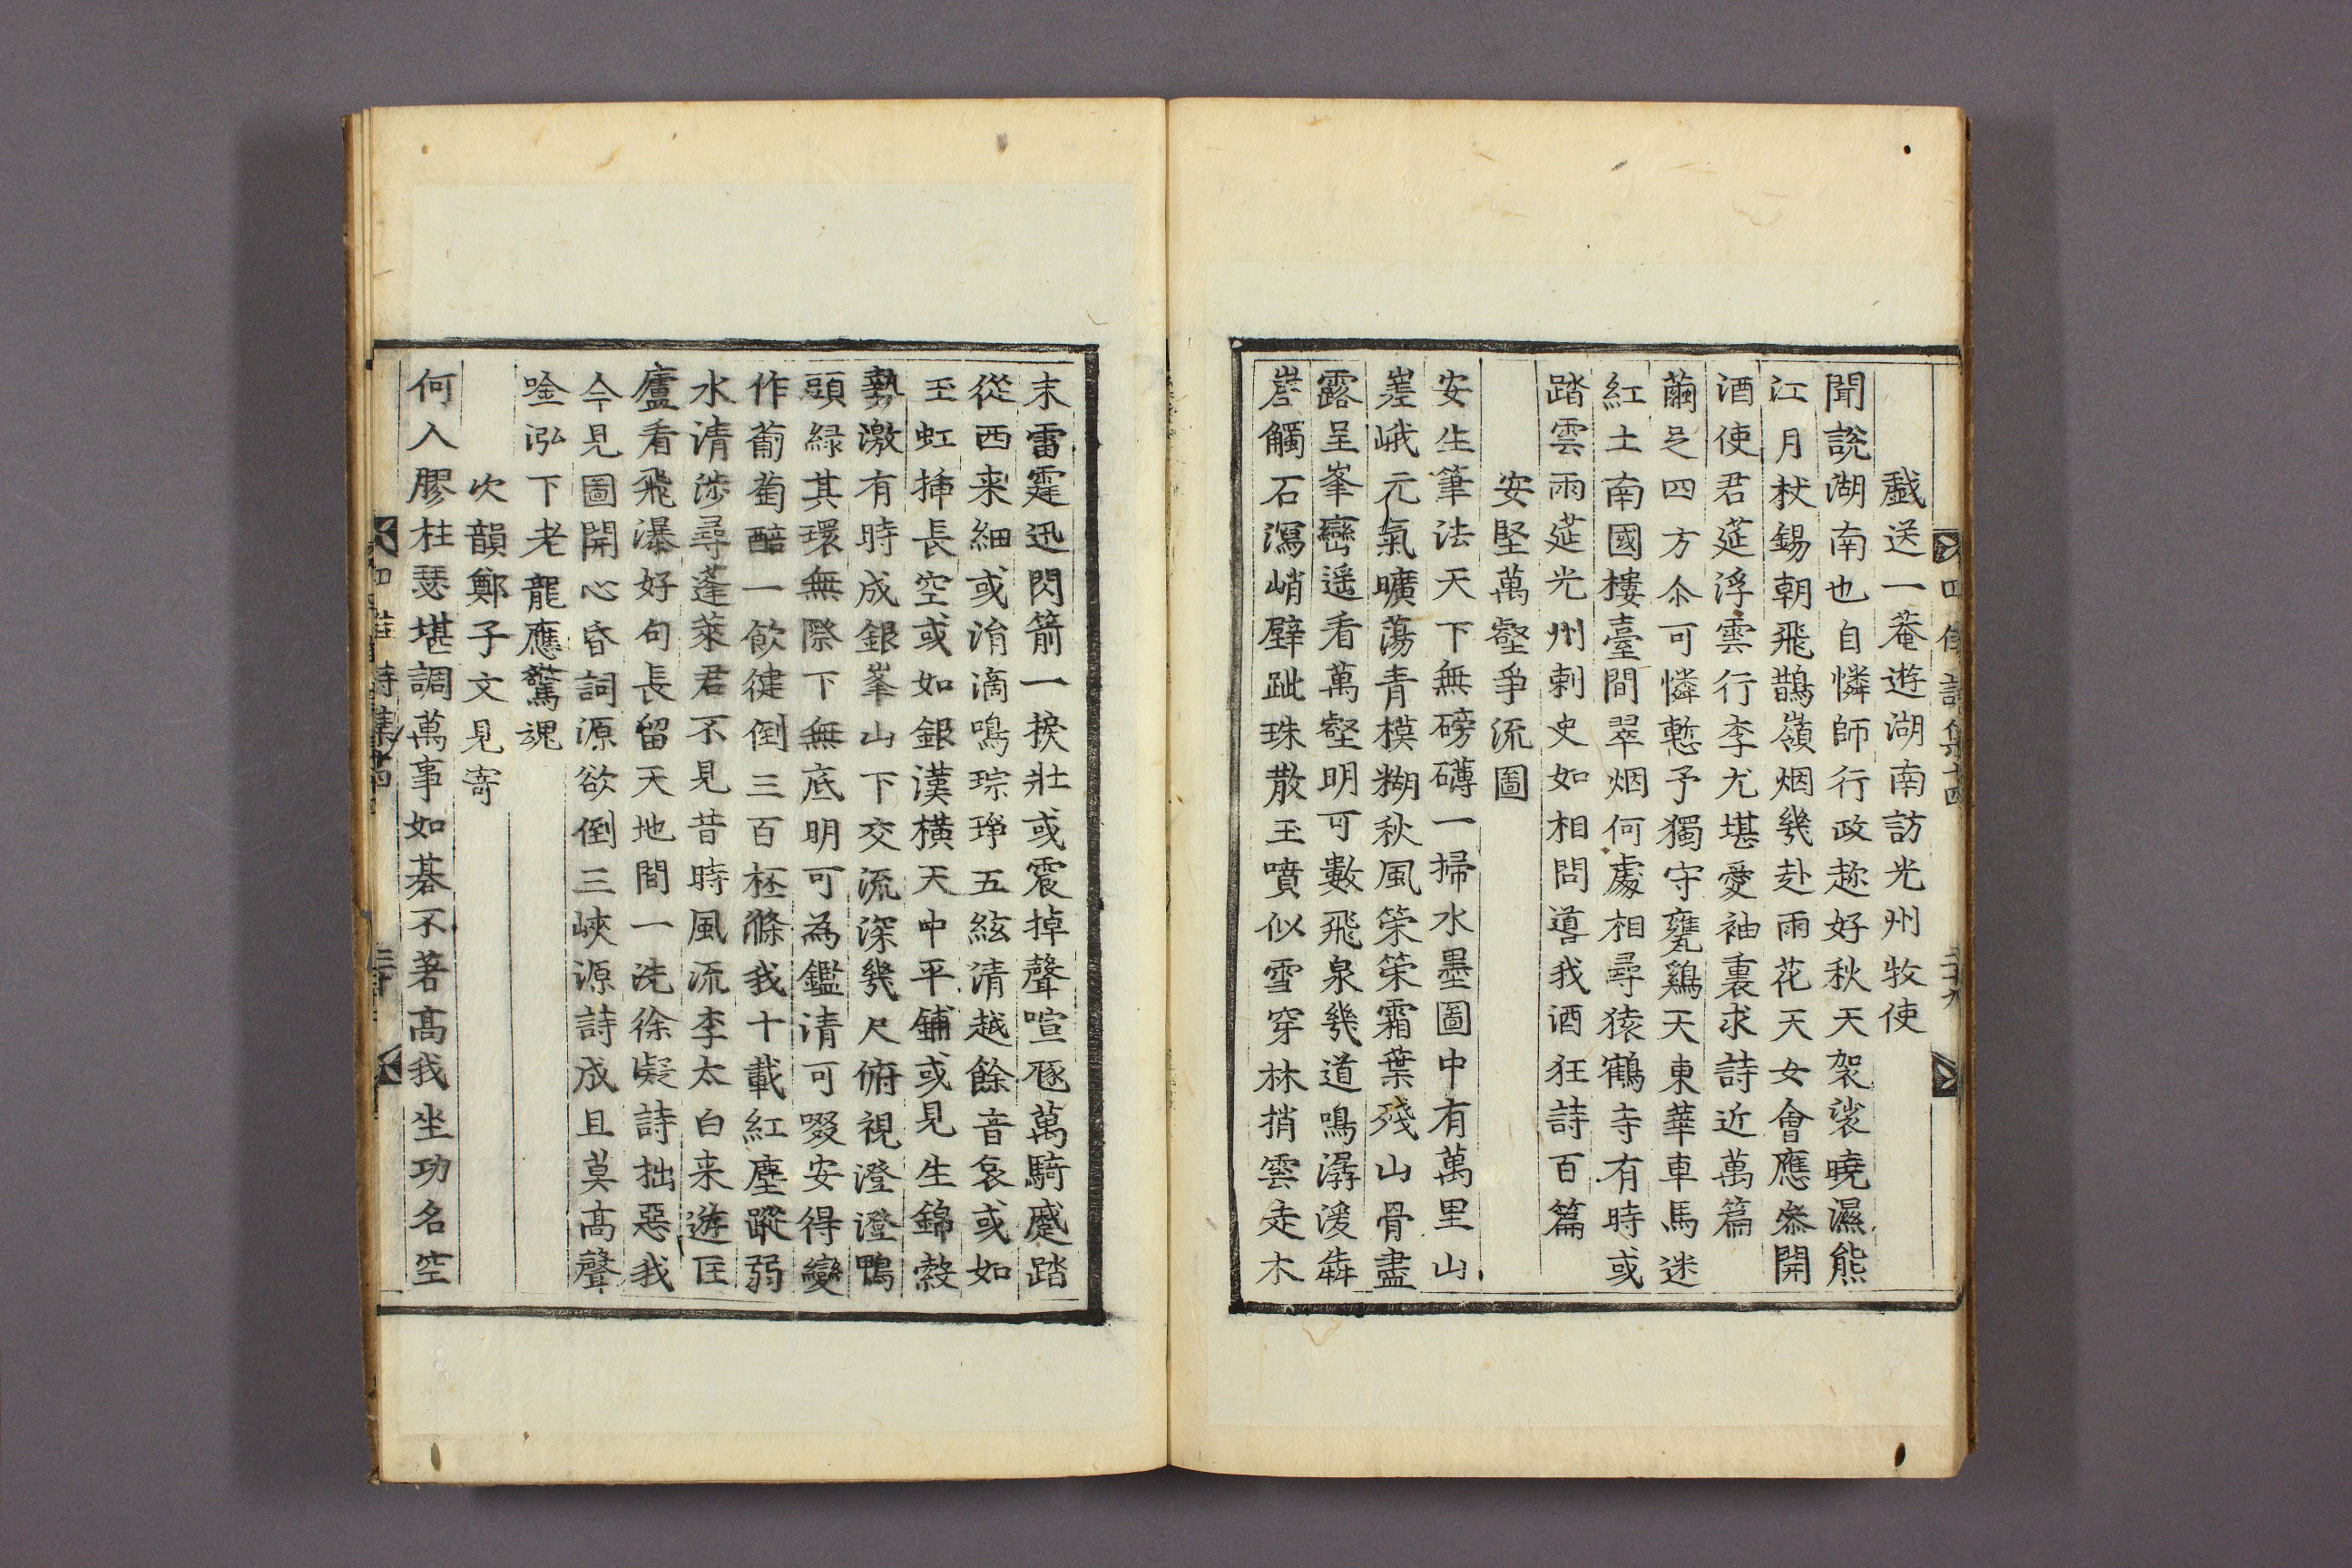 戱送一菴遊湖南訪光州牧使
聞說湖南也自憐師行政趂好秋天袈裟曉濕熊
江月杖錫朝飛鵲嶺烟幾赴雨花天女會應叅開
酒使君莚浮雲行李尤堪愛袖裏求詩近萬篇
繭足四方尒可憐慙予獨守甕鷄天東華車馬迷
紅土南國樓臺間翠烟何處相尋猿鶴寺有時或
踏雲雨莚光州刺史如相問導我酒狂詩百篇
安堅萬壑爭流圖
安生筆法天下無磅礴一掃水墨圖中有萬里山
嵳峨元氣曠蕩青模糊秋風策策霜葉殘山骨盡
露呈峯巒遥看萬壑明可數飛泉幾道鳴潺湲犇
崖觸石瀉峭壁跐珠散玉噴似雪穿林捎雲走木
末雷霆迅閃箭一捩壯或震掉聲喧豗萬騎蹙踏
從西来細或㳙滴鳴琮琤五絃清越餘音哀或如
玉虹揷長空或如銀漢橫天中平鋪或見生錦縠
勢激有時成銀峯山下交流深幾尺俯視澄澄鴨
頭緑其環無際下無底明可為鑑清可啜安得變
作葡萄醅一飮徤倒三百柸滌我十載紅塵蹤弱
水清淺尋蓬萊君不見昔時風流李太白来遊匡
廬看飛瀑好句長留天地間一洗徐凝詩拙惡我
今見圖開心昏詞源欲倒三峽源詩成且莫高聲
唫泓下老龍應驚魂
次韻鄭子文見寄
何入膠柱瑟堪調萬事如碁不著高我坐功名空